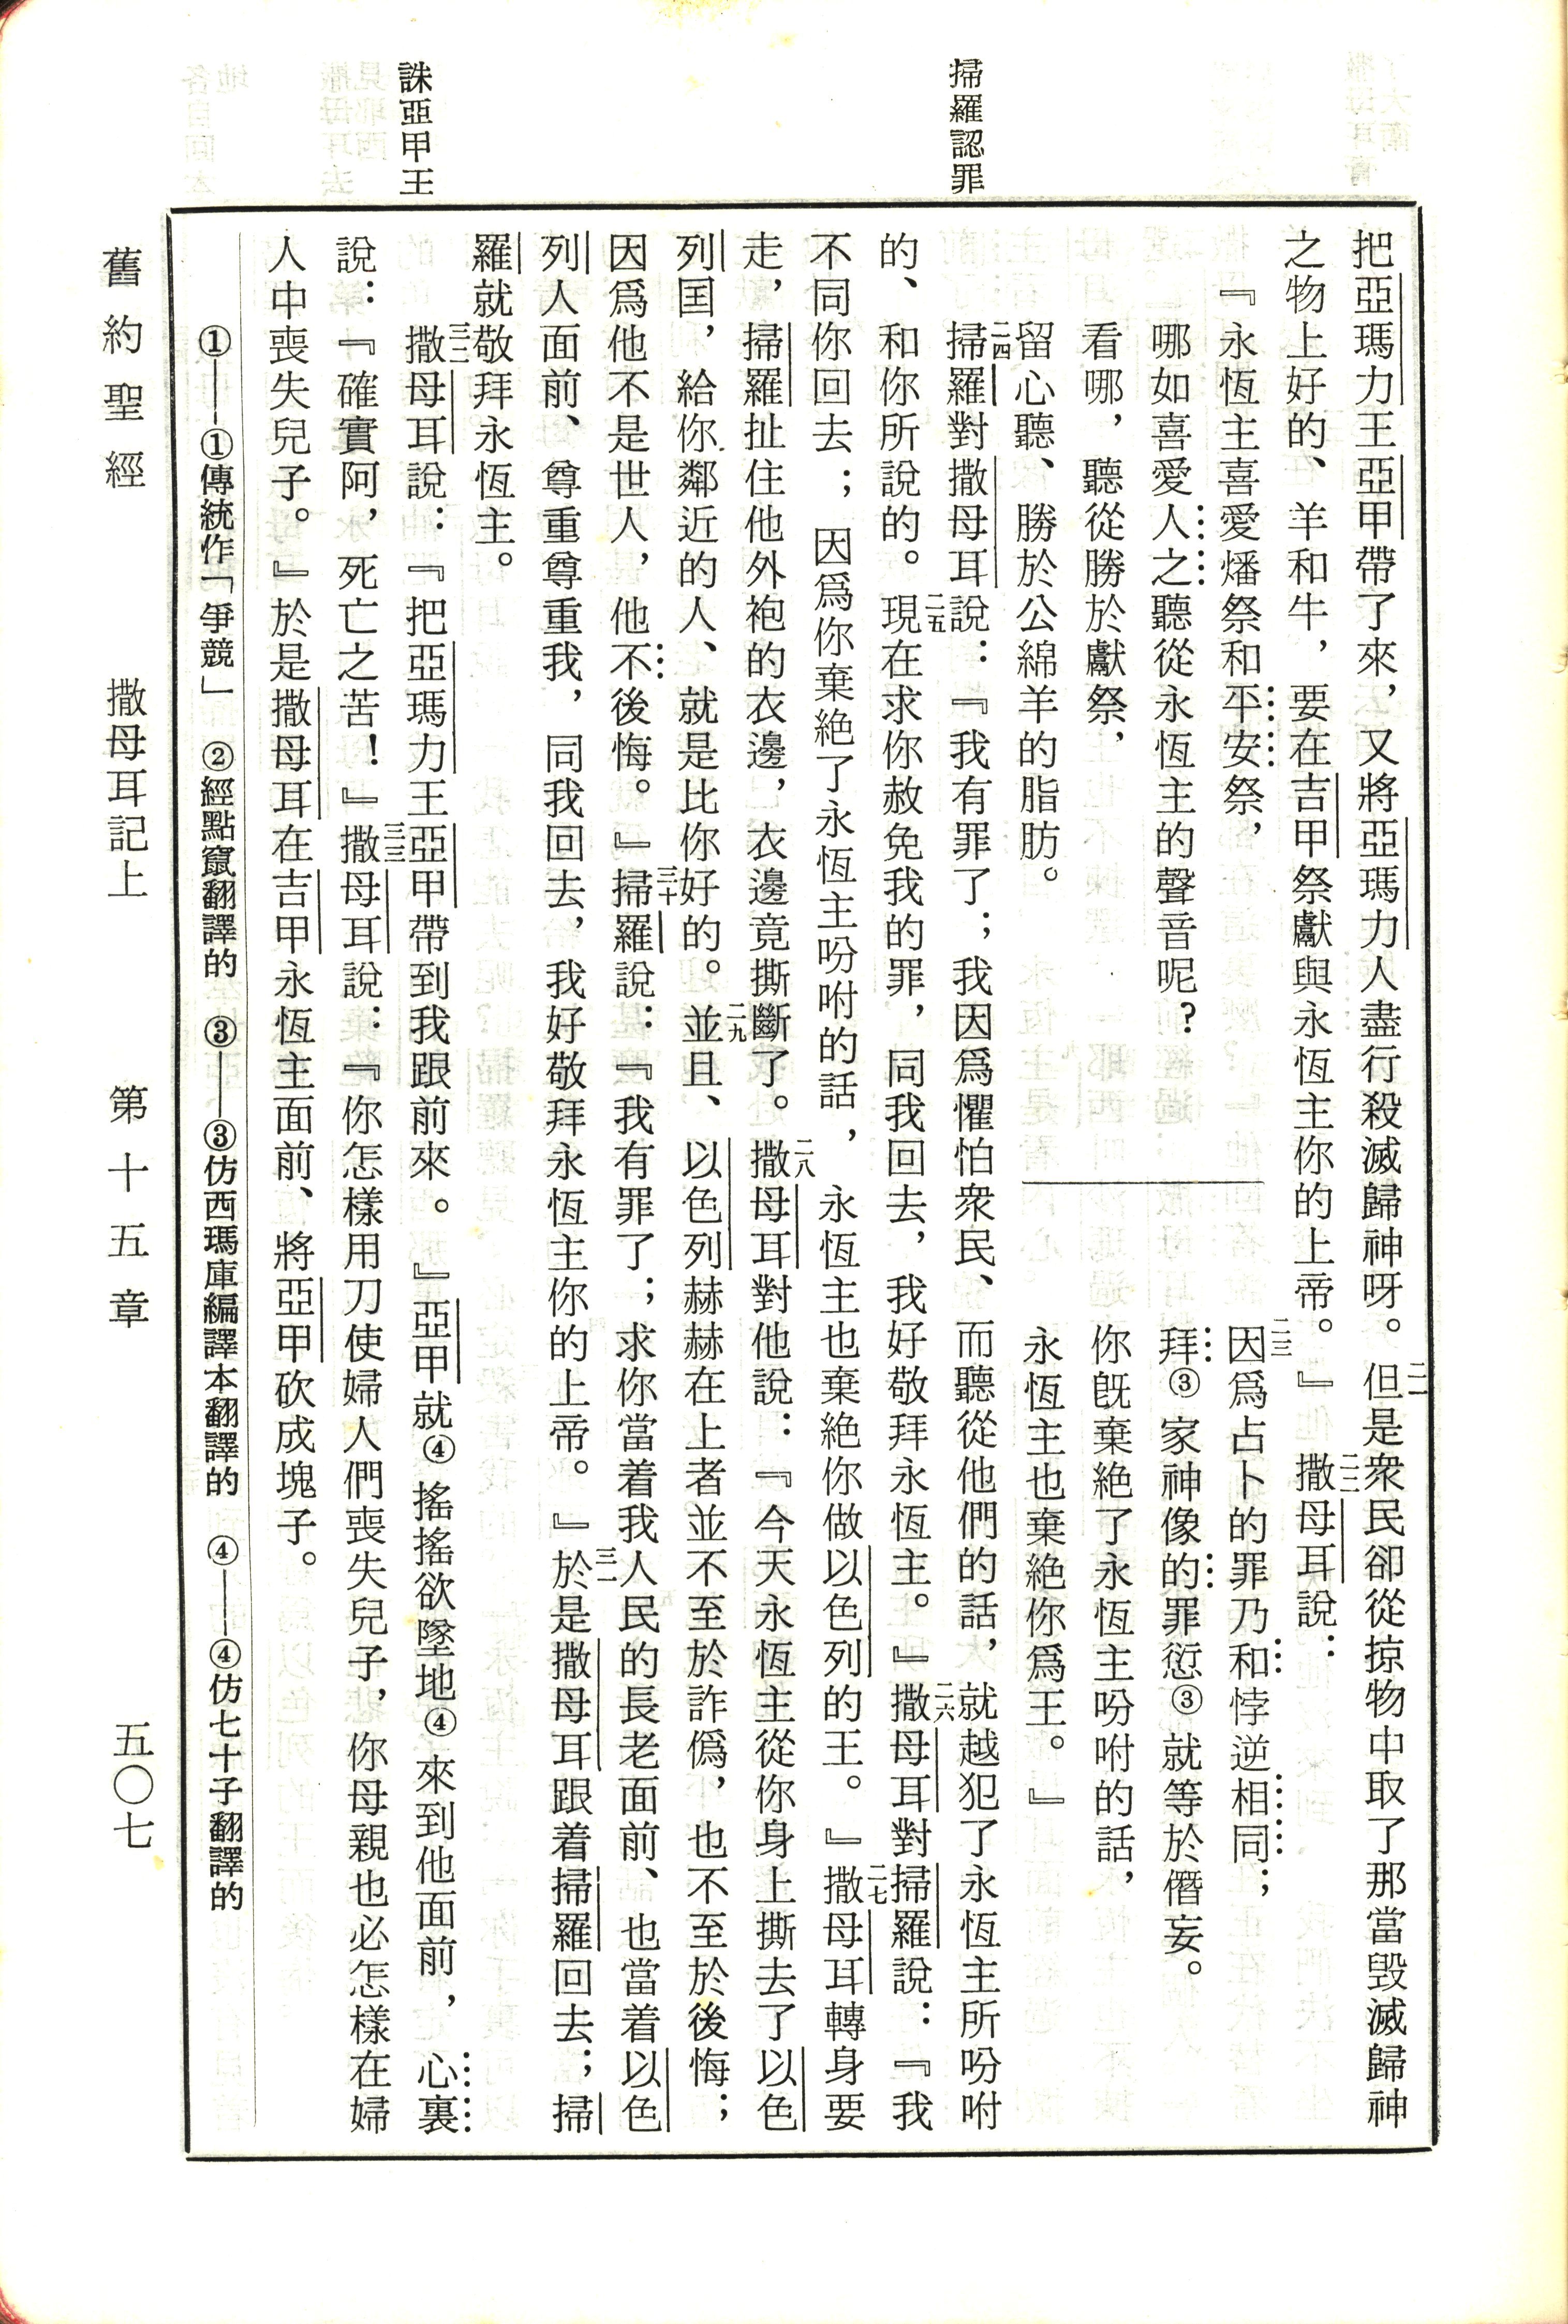 掃羅認罪
誅亞甲王
把亞瑪力王亞甲帶了來，又將亞瑪力人盡行殺滅歸神呀。二一但是衆民卻從掠物中取了那當毀滅歸神
之物上好的、羊和牛，要在吉甲祭獻與永恆主你的上帝。』二二撒母耳說：
『永恆主喜愛燔祭和平安祭，
哪如喜愛人之聽從永恆主的聲音呢？
看哪，聽從勝於獻祭，
留心聽、勝於公綿羊的脂肪。
二三因爲占卜的罪乃和悖逆相同；
拜③家神像的罪愆③就等於僭妄。
你旣棄絕了永恆主吩咐的話，
永恆主也棄絕你爲王。』
二四掃羅對撒母耳說：『我有罪了；我因爲懼怕衆民、而聽從他們的話，就越犯了永恆主所吩咐
的、和你所說的。二五現在求你赦免我的罪，同我回去，我好敬拜永恆主。』二六撒母耳對掃羅說：『我
不同你回去；因爲你棄絕了永恆主吩咐的話，永恆主也棄絕你做以色列的王。』二七撒母耳轉身要
走，掃羅扯住他外袍的衣邊，衣邊竟撕斷了。二八撒母耳對他說：『今天永恆主從你身上撕去了以色
列国，給你鄰近的人、就是比你好的。二九並且、以色列赫赫在上者並不至於詐僞，也不至於後悔；
因爲他不是世人，他不後悔。』三十掃羅說：『我有罪了；求你當着我人民的長老面前、也當着以色
列人面前、尊重尊重我，同我回去，我好敬拜永恆主你的上帝。』三一於是撒母耳跟着掃羅回去；掃
羅就敬拜永恆主。
三二撒母耳說：『把亞瑪力王亞甲帶到我跟前來。』亞甲就④搖搖欲墜地④來到他面前，心裏
說：『確實阿，死亡之苦！』三三撒母耳說：『你怎樣用刀使婦人們喪失兒子，你母親也必怎樣在婦
人中喪失兒子。』於是撒母耳在吉甲永恆主面前、將亞甲砍成塊子。
①——①傳統作「爭競」　②經點竄翻譯的　③——③仿西瑪庫編譯本翻譯的　④——④仿七十子翻譯的
舊約聖經　撒母耳記上　第十五章　五〇七